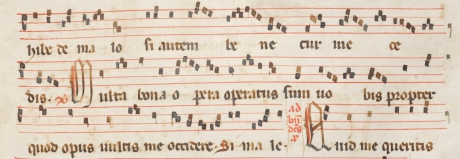 hibe de ma lo si autem be ne cur me ce
dis. Multa bona o pera operatus sum uo bis propter
quod opus uultis me occidere. Si ma le. Quid me queritis